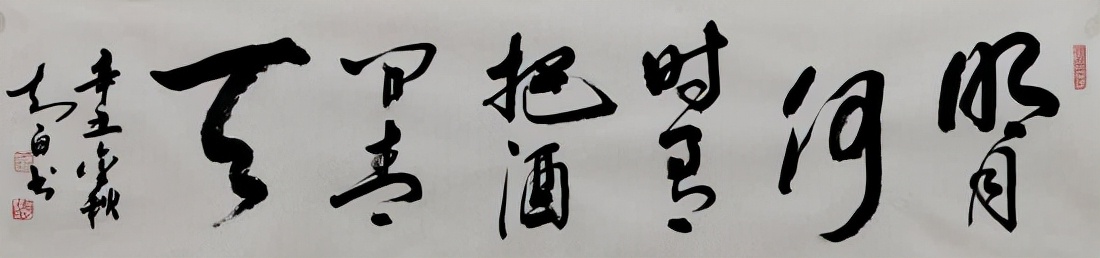 明月
何
时有
把酒
问青
天
辛丑金秋
知白书